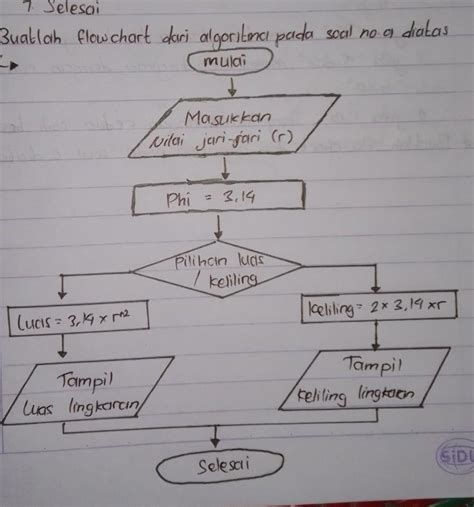 7. Selesai
Buatlah flowchart dari algoritma pada soal no.a diatas
mulai
Masukkan
Nilai jari-jari (r)
Phi = 3.14
Pilihan luas
/ keliling
Luas = 3.14 x r^2
keliling = 2 x 3.14 x r
Tampil
Luas lingkaran
Tampil
keliling lingkaran
Selesai
SIDU